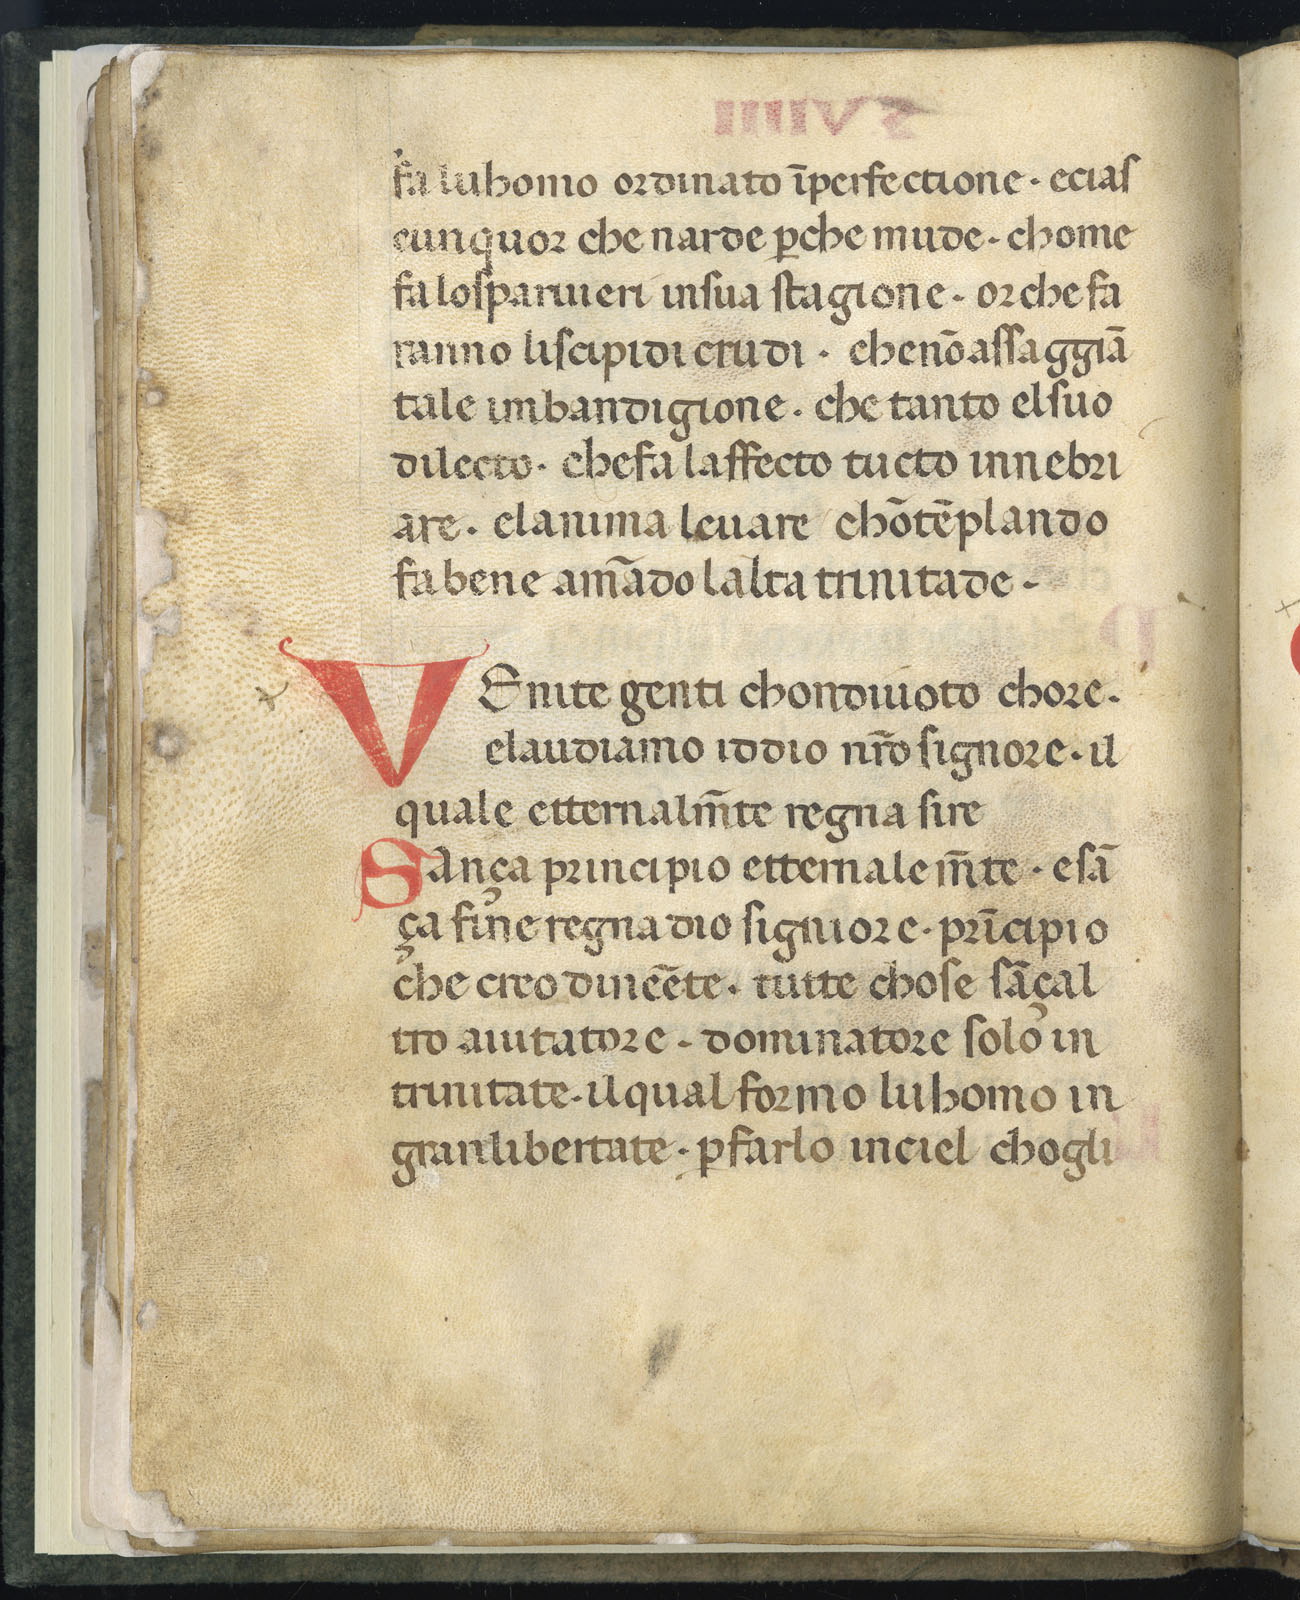 fa luhomo ordinato īperfectione · ecias
cunquor che narde ꝑche mude · chome
fa lo sparuieri insua stagione · or che fa
ranno li scipidi crudi · che nō assaggiā
tale imbandigione · che tanto el suo
dilecto · che fa laffecto tucto innebri
are · el anima leuare chōtēplando
fa bene amādo lalta trinitade ·
VEnite genti chondiuoto chore ·
e laudiamo iddio nr̄o signore · il
quale etternalm̄te regna sire
Sança principio etternalem̄te · e sā
ça fine regna dio signiore · prīcipio
che creo diniēte · tutte chose sāçal
tro aiutatore · dominatore solo in
trinitate · il qual formo luhomo in
gran libertate · ꝑ farlo in ciel chogli